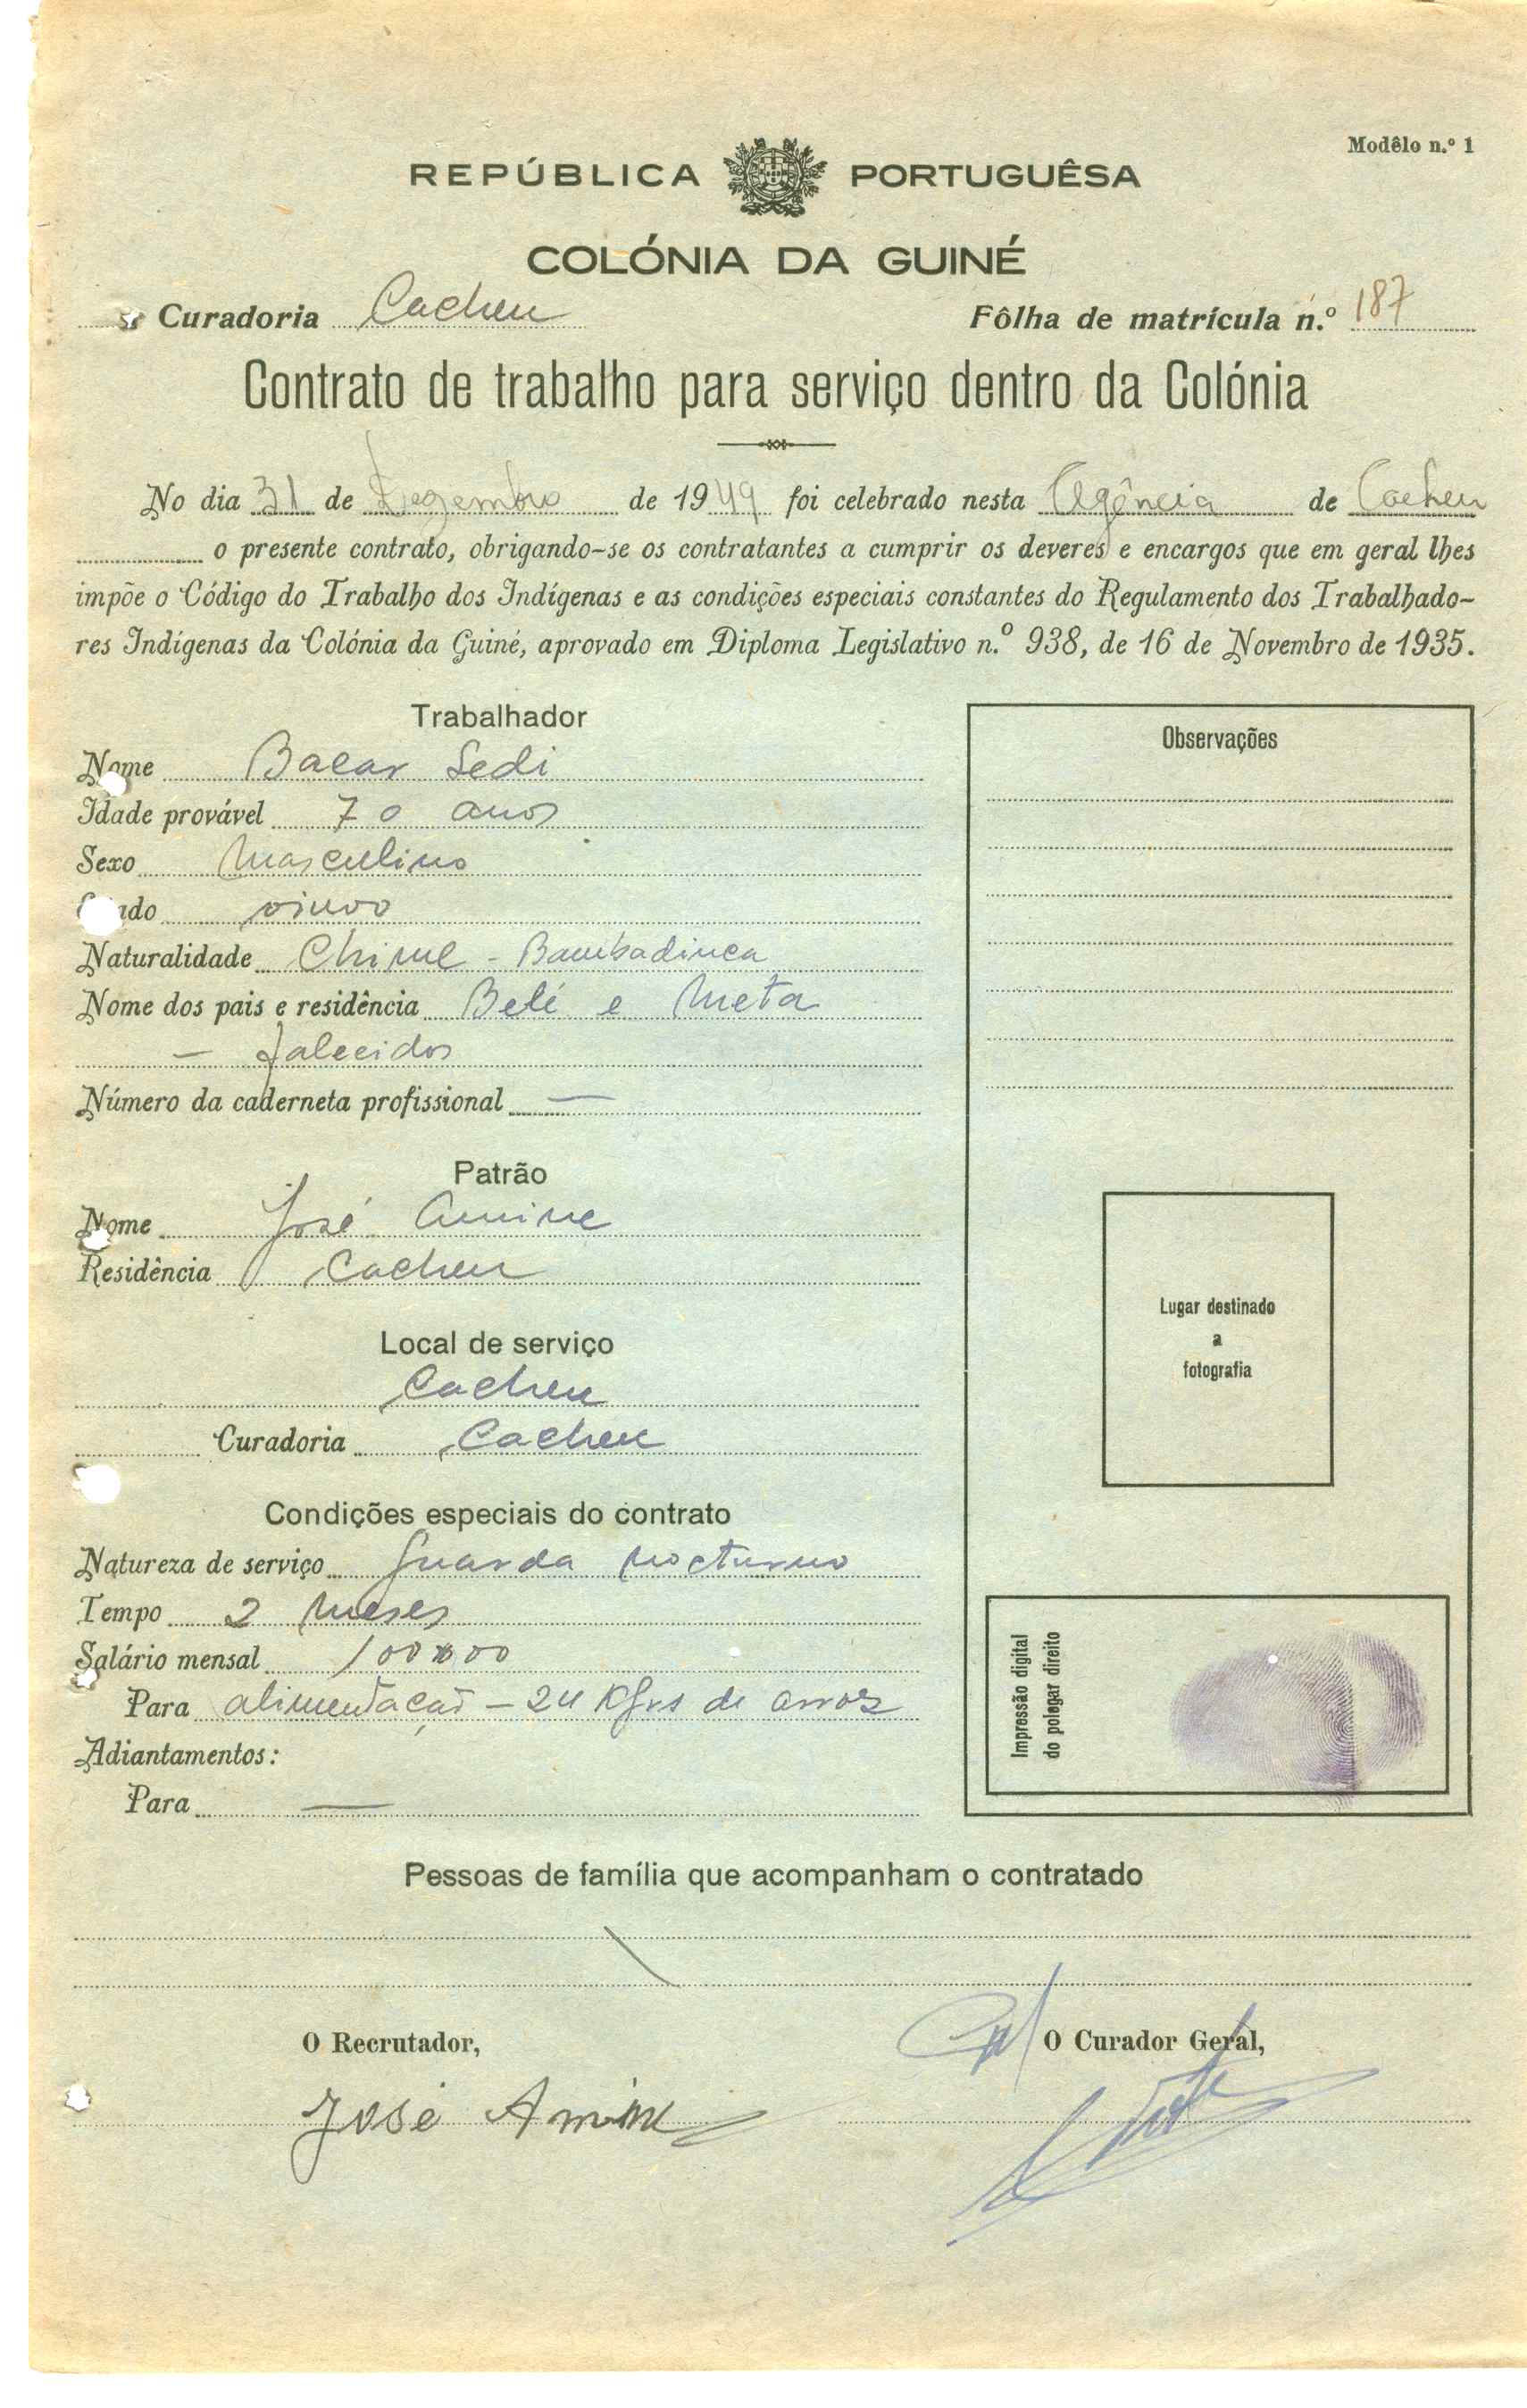 Modêlo n.º 1
REPÚBLICA PORTUGUÊSA
COLÓNIA DA GUINÉ
Curadoria Cacheu Fôlha de matrícula n.º 187
Contrato de trabalho para serviço dentro da Colónia
No dia 31 de Dezembro de 1949 foi celebrado nesta Agência de Cacheu
o presente contrato, obrigando-se os contratantes a cumprir os deveres e encargos que em geral lhes
impõe o Código do Trabalho dos Indígenas e as condições especiais constantes do Regulamento dos Trabalhado-
res Indígenas da Colónia da Guiné, aprovado em Diploma Legislativo n.º 938, de 16 de Novembro de 1935.
Trabalhador
Nome Bacar Sedi
Idade provável 70 anos
Sexo Masculino
viuvo
Naturalidade Chime - Bambadinca
Nome dos pais e residência Belé e Meta
— falecidos
Número da caderneta profissional —
Patrão
Nome José Amine
Residência Cacheu
Local de serviço
Cacheu
Curadoria Cacheu
Condições especiais do contrato
Natureza de serviço Guarda nocturno
Tempo 2 meses
Salário mensal 100$00
Para alimentação - 24 Kgrs de arroz
Adiantamentos:
Para —
Observações
Lugar destinado
a
fotografia
Impressão digital
do polegar direito
Pessoas de família que acompanham o contratado
O Recrutador,
José Amine
O Curador Geral,